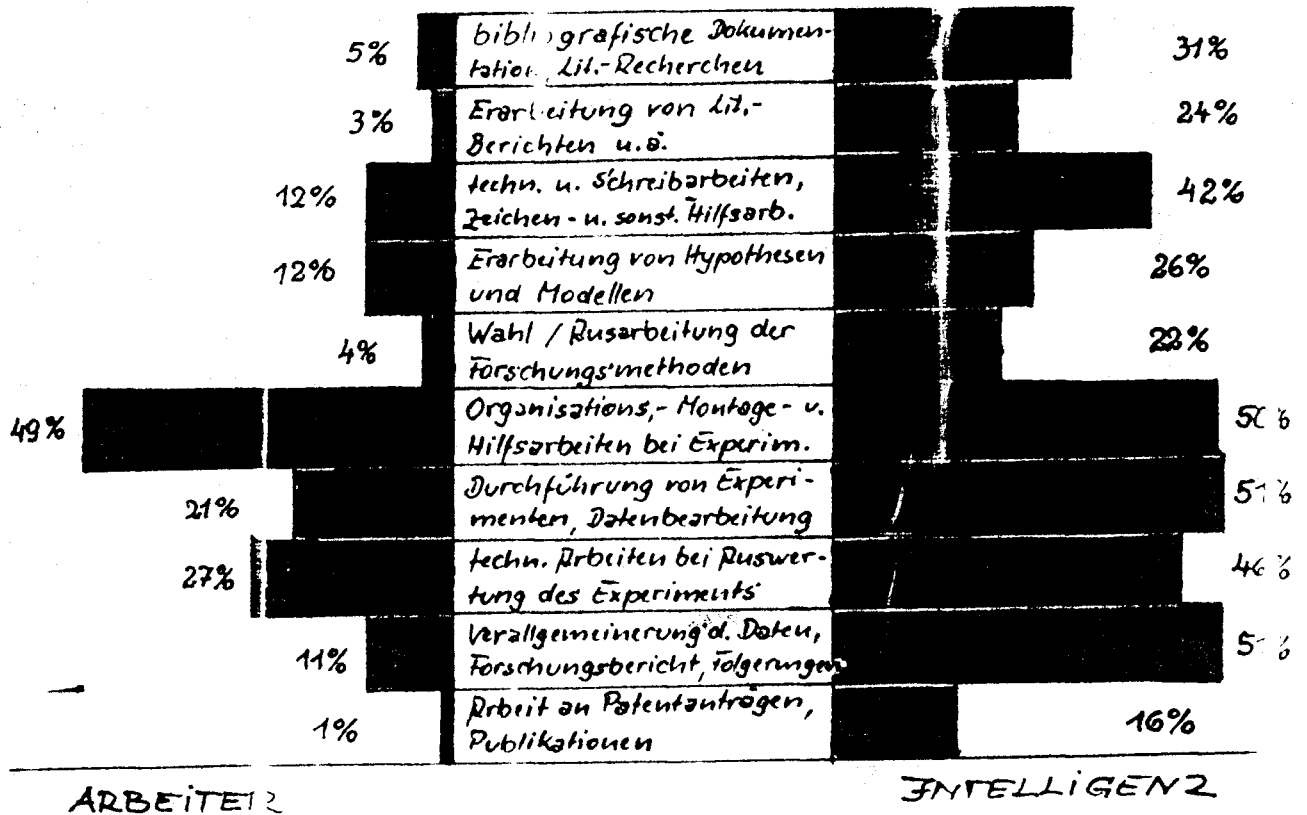 5% bibliografische Dokumen- 31%
tation, Lit.-Recherchen
3% Erarbeitung von Lit.- 24%
Berichten u.ä.
12% techn. u. Schreibarbeiten, 42%
Zeichen- u. sonst. Hilfsarb.
12% Erarbeitung von Hypothesen 26%
und Modellen
4% Wahl / Ausarbeitung der 22%
Forschungsmethoden
49% Organisations,- Montage- u. 50%
Hilfsarbeiten bei Experim.
21% Durchführung von Experi- 51%
menten, Datenbearbeitung
27% techn. Arbeiten bei Auswer- 46%
tung des Experiments
11% Verallgemeinerung d. Daten,
Forschungsbericht, Folgerungen
1% Arbeit an Patentanträgen, 16%
Publikationen
ARBEITER INTELLIGENZ